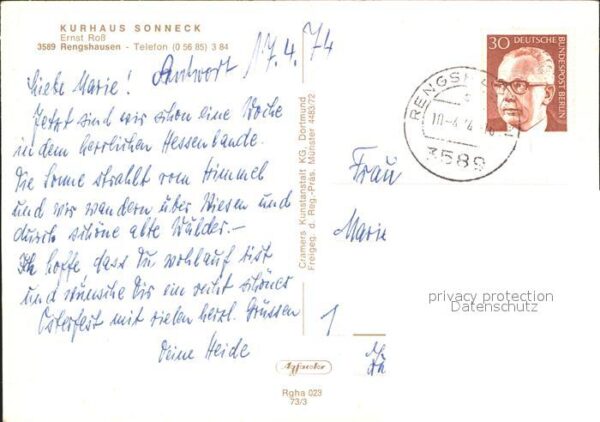 KURHAUS SONNECK
Ernst Roß
3589 Rengshausen - Telefon (0 56 85) 3 84
Antwort 17.4.74
Liebe Marie!
Jetzt sind wir schon eine Woche
in dem herrlichen Hessenlande.
Die Sonne strahlt vom Himmel
und wir wandern über Wiesen und
durch schöne alte Wälder. –
Ich hoffe, dass Du wohlauf bist
und wünsche Dir ein recht schönes
Osterfest mit vielen herzl. Grüssen
Deine Heide
Cramers Kunstanstalt KG, Dortmund
Freigeg. d. Reg.-Präs. Münster 4483/72
Rgha 023
73/3
30
DEUTSCHE
BUNDESPOST BERLIN
3589
Frau
Marie
1
privacy protection
Datenschutz